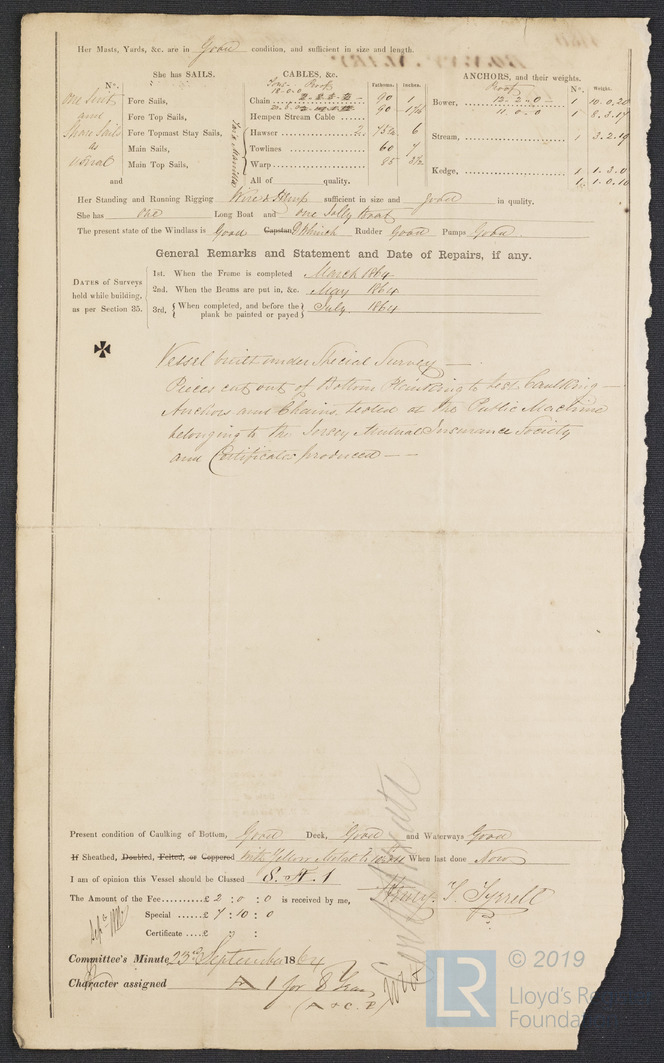 Her Masts, Yards, &c. are in Good condition, and sufficient in size and length.
She has SAILS. CABLES, &c. Fathoms. Inches. ANCHORS, and their weights.
Nº. Tons Proof Proof Nº. Weight.
18-0-0
one Suit Fore Sails, Chain 90 1 Bower, 12-2-0 1 10.0.20
and Fore Top Sails, Hempen Stream Cable 90 11-0-0 1 8.3.17
Spare Sails Fore Topmast Stay Sails, Hawser 2 75 ea 6 Stream, 1 3.2.19
as Main Sails, Towlines 60 7
usual Main Top Sails, Warp 85 Kedge, 1 1.3.0
and All of quality. 1 1.0.10
Her Standing and Running Rigging Wire & Hemp sufficient in size and good in quality.
She has one Long Boat and one Jolly Boat
The present state of the Windlass is Good Capstan Winch Rudder Good Pumps Good.
General Remarks and Statement and Date of Repairs, if any.
DATES of Surveys held while building, as per Section 35.
1st. When the Frame is completed March 1864
2nd. When the Beams are put in, &c. May 1864
3rd. { When completed, and before the plank be painted or payed } July 1864
Vessel built under Special Survey —
Pieces cut out of Bottom Planking to test Caulking —
Anchors and Chains, tested at the Public Machine
belonging to the Jersey Mutual Insurance Society
and Certificates produced — —
Present condition of Caulking of Bottom, Good Deck, Good and Waterways Good
If Sheathed, Doubled, Felted, or Coppered With Yellow Metal When last done Now
I am of opinion this Vessel should be Classed 8. A. 1
The Amount of the Fee £ 2 : 0 : 0 is received by me, Henry T. Tyrrell
Special £ 7 : 10 : 0
Certificate £ : :
Committee's Minute 23rd September 1864
Character assigned A 1 for 8 Years
(A & C. P.)
© 2019
LR
Lloyd's Register
Foundation